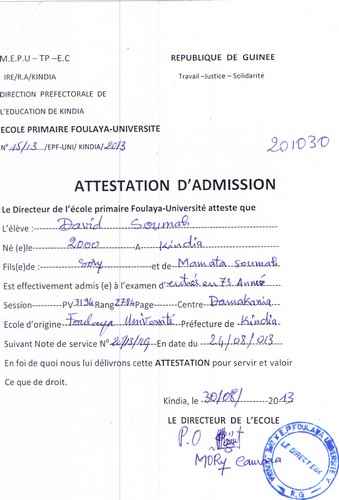 M.E.P.U – TP –E.C
REPUBLIQUE DE GUINEE
IRE/R.A/KINDIA
Travail –Justice – Solidarité
DIRECTION PREFECTORALE DE
L'EDUCATION DE KINDIA
ECOLE PRIMAIRE FOULAYA-UNIVERSITE
N° 15/13 /EPF-UNI/ KINDIA/ 2013
201030
ATTESTATION D'ADMISSION
Le Directeur de l'école primaire Foulaya-Université atteste que
L'élève : David Soumah
Né (e)le 2000 A Kindia
Fils(e)de : Sory et de Mamata Soumah
Est effectivement admis (e) à l'examen d'entrée en 7è Année
Session PV 3194 Rang 2784 Page Centre Damakania
Ecole d'origine Foulaya Université Préfecture de Kindia
Suivant Note de service N° En date du 24/08/013
En foi de quoi nous lui délivrons cette ATTESTATION pour servir et valoir
Ce que de droit.
Kindia, le 30/08/ 2013
LE DIRECTEUR DE L'ECOLE
P.O
Mory Camara
E.P FOULAYA UNIVERSITE
LE DIRECTEUR
R.G